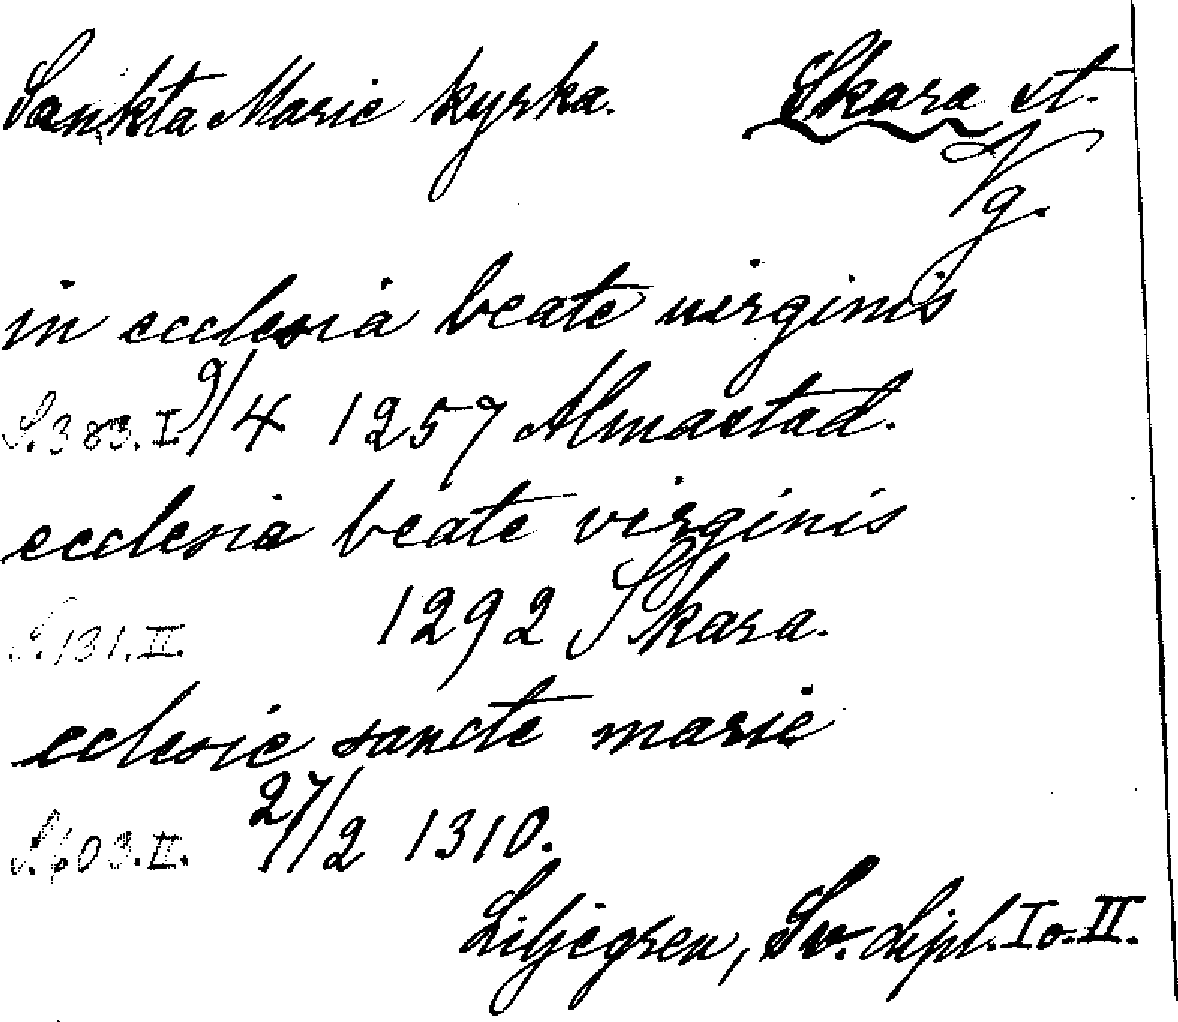 Sankta Marie kyrka. Skara st.
Vg.
in ecclesia beate uirginis
S. 383. I. 9/4 1257 Almastad.
ecclesia beate virginis
S. 131. II. 1292 Skara.
ecclesie sancte marie
S. 603. II. 27/2 1310.
Liljegren, Sv. dipl. I o. II.